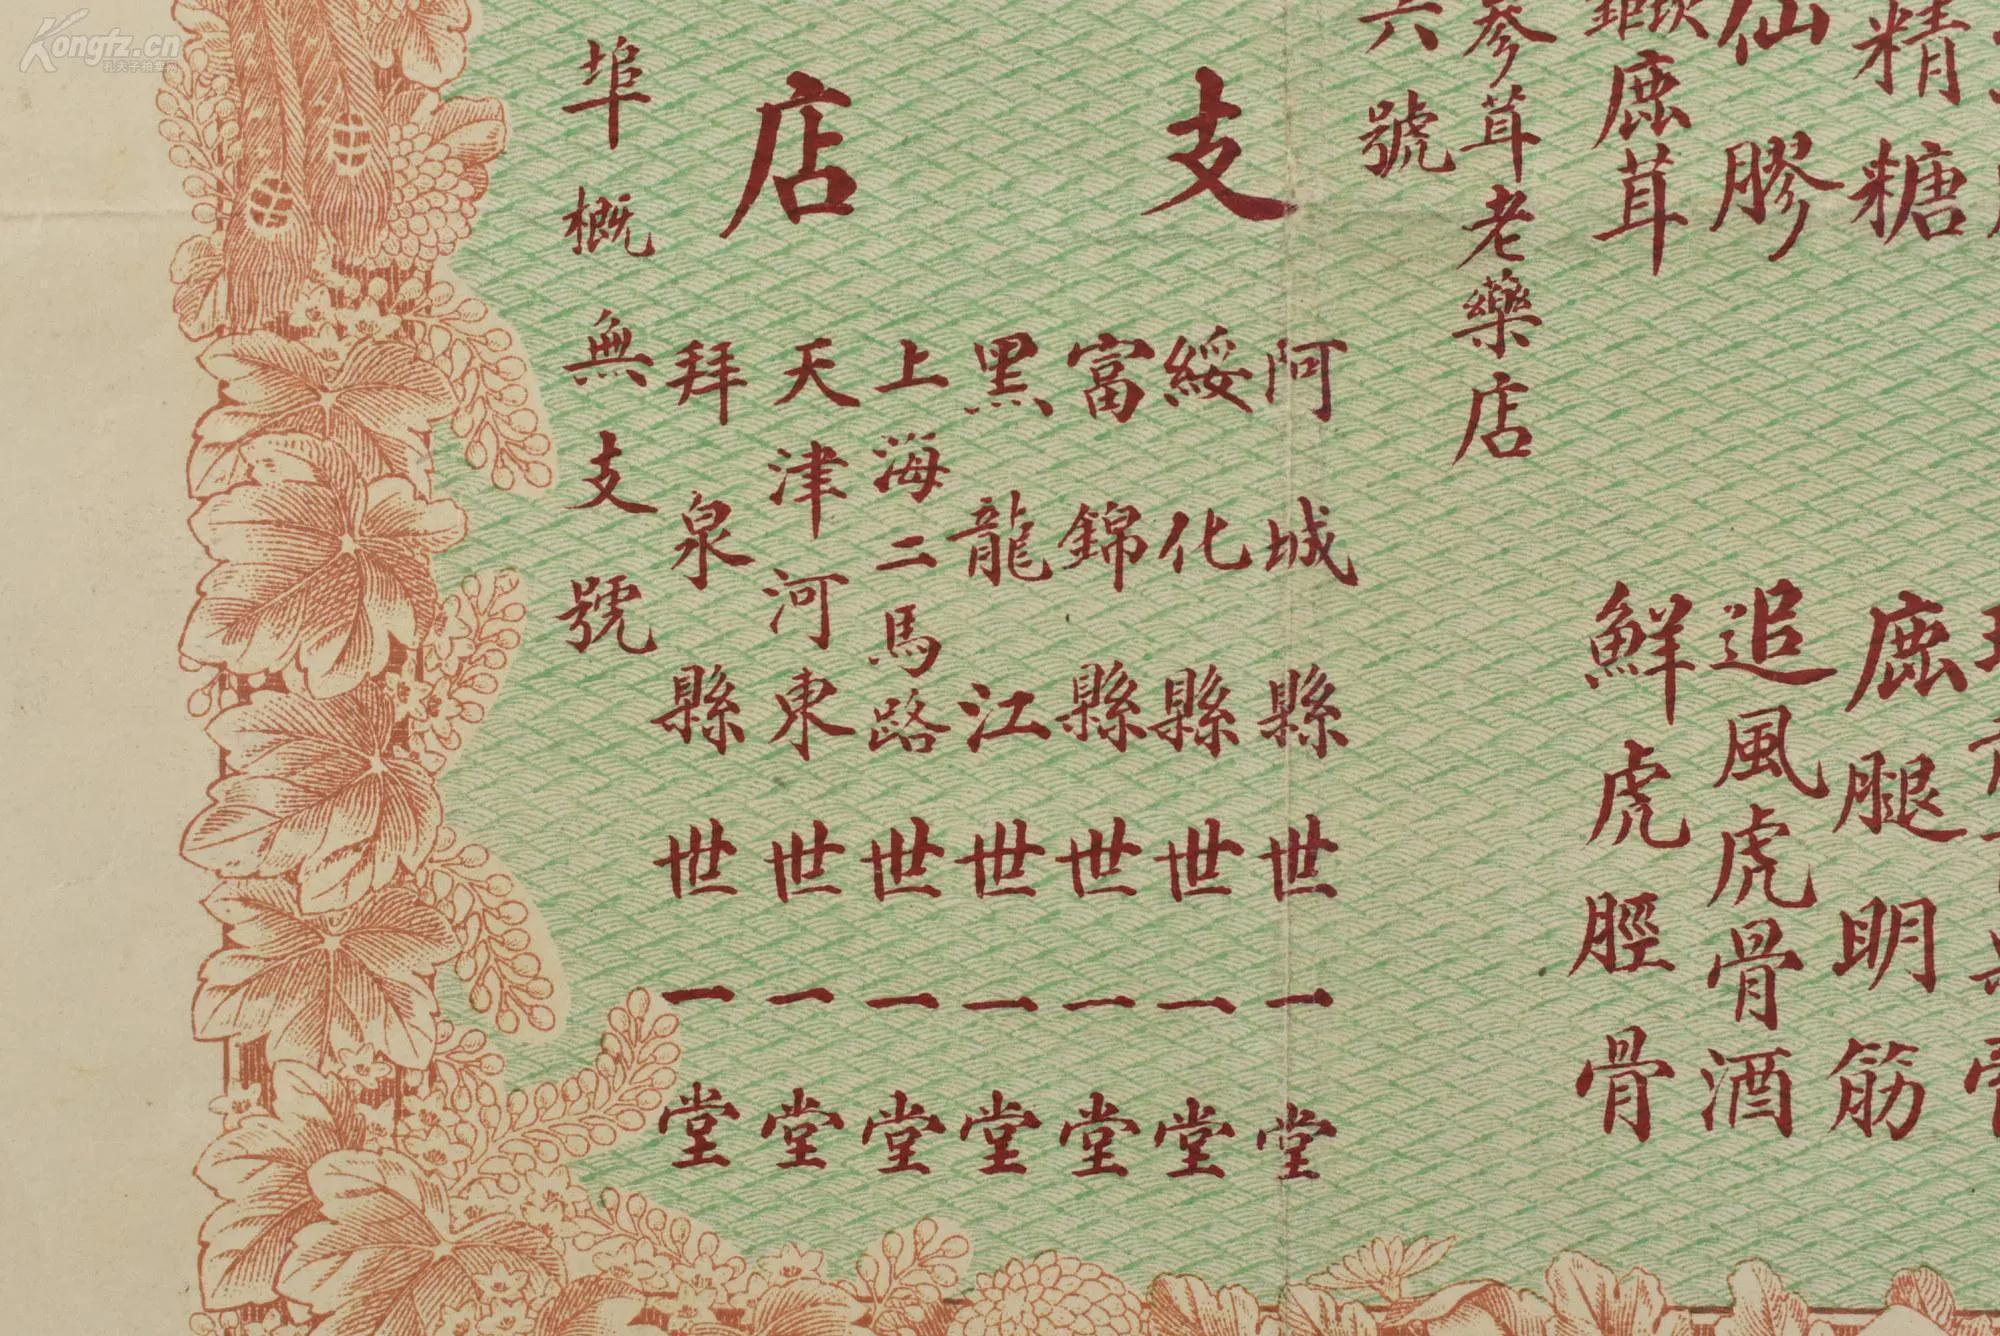 精糖
鹿腿明筋
仙膠
追風虎骨酒
鹿茸
鮮虎脛骨
參茸老藥店
六號
支店
阿城縣世一堂
綏化縣世一堂
富錦縣世一堂
黑龍江世一堂
上海二馬路世一堂
天津河東世一堂
拜泉縣世一堂
埠概無支號
Kongfz.cn
孔夫子拍卖网